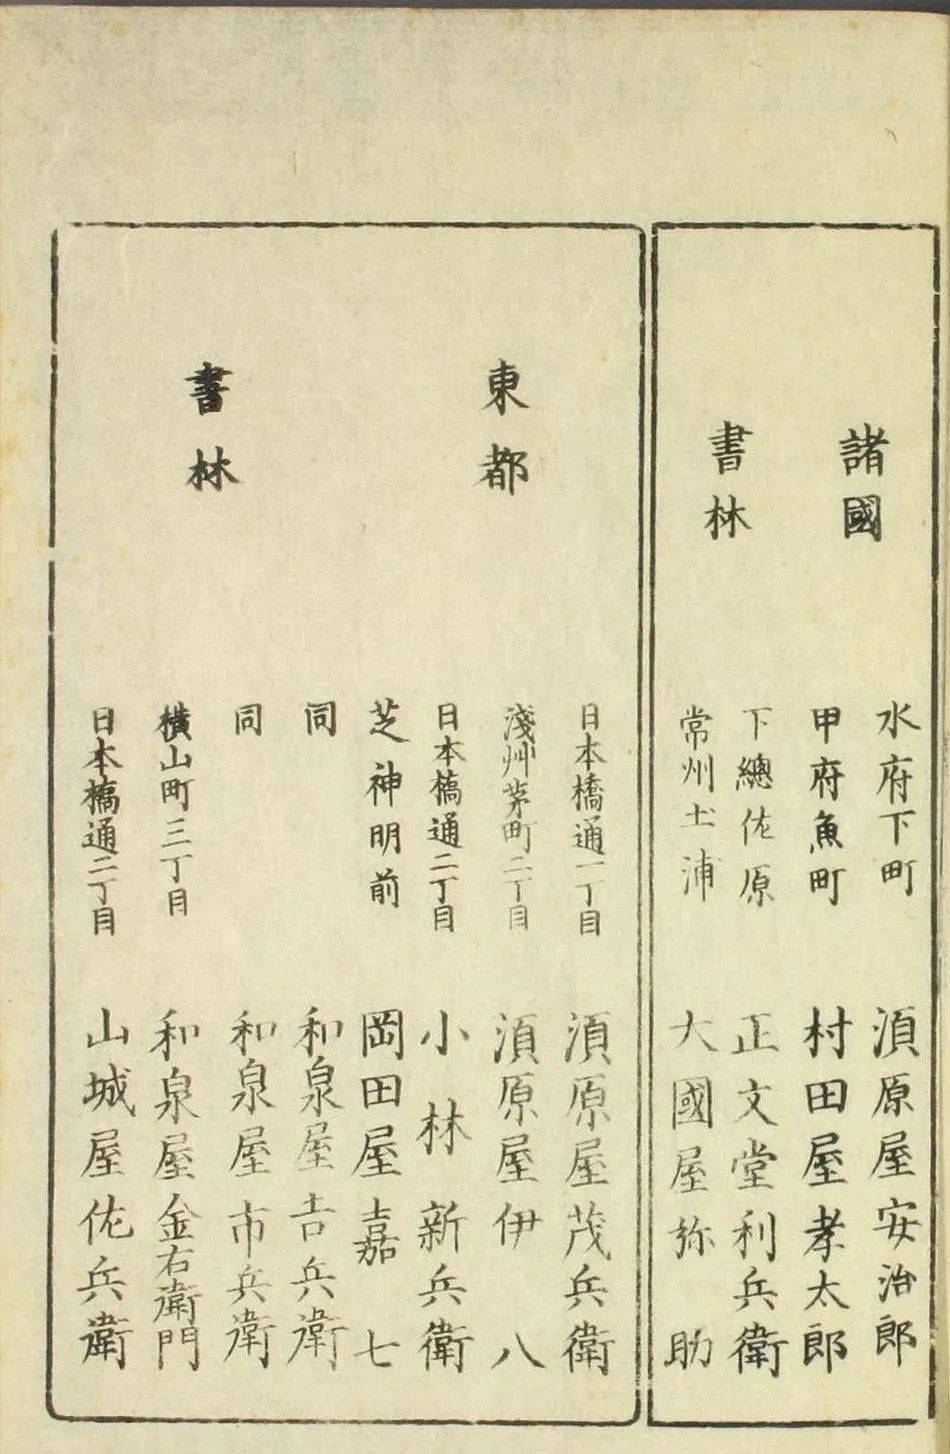 諸國
書林
水府下町 須原屋安治郎
甲府魚町 村田屋孝太郎
下總佐原 正文堂利兵衛
常州土浦 大國屋弥助
東都
書林
日本橋通一丁目 須原屋茂兵衛
淺艸茅町二丁目 須原屋伊八
日本橋通二丁目 小林新兵衛
芝神明前 岡田屋嘉七
同 和泉屋吉兵衛
同 和泉屋市兵衛
横山町三丁目 和泉屋金右衛門
日本橋通二丁目 山城屋佐兵衛